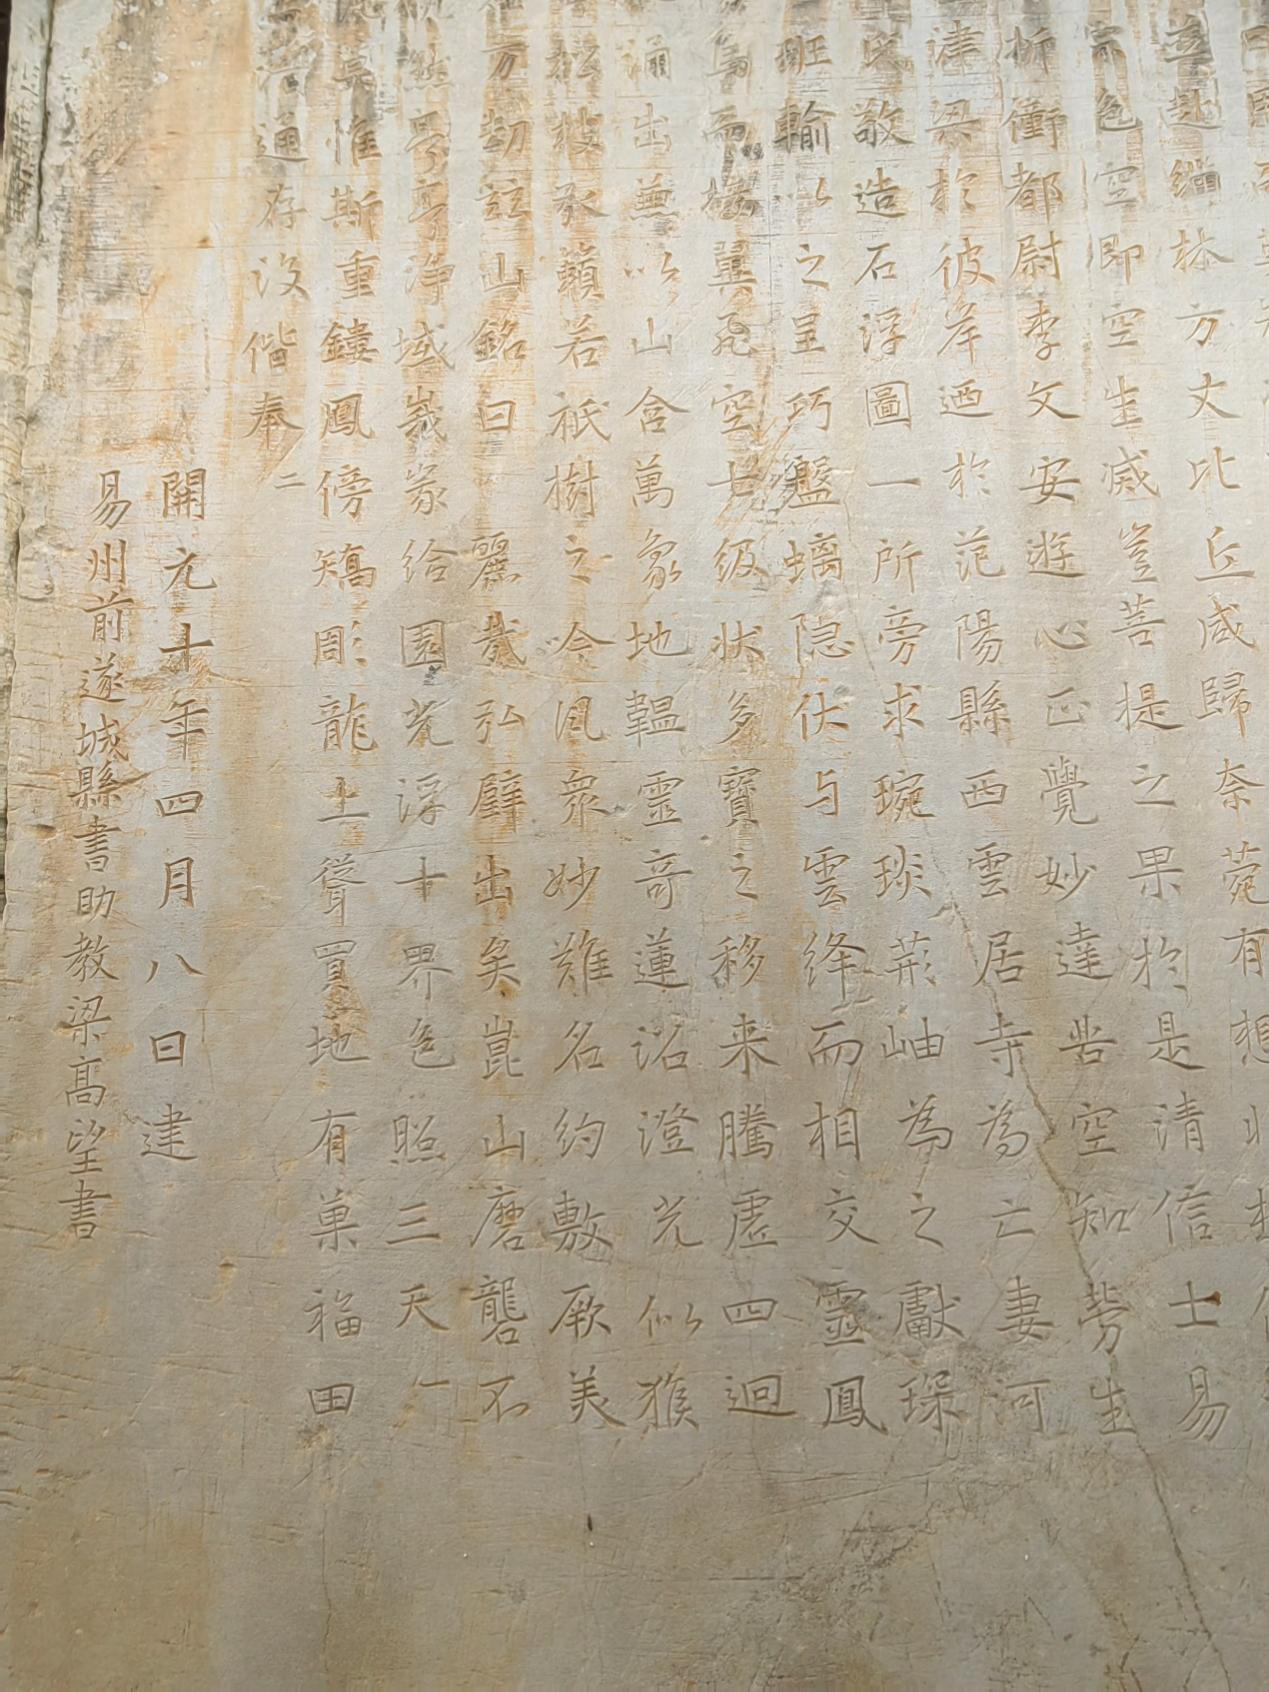 有想
赴緇林方丈比丘咸歸奈菀
色空即空生滅豈菩提之果於是清信士易
折衝都尉李文安遊心正覺妙達苦空知勞生
津梁於彼岸迺於范陽縣西雲居寺為亡妻河
氏敬造石浮圖一所旁求琬琰荊岫為之獻琛
班輸以之呈巧盤螭隐伏与雲絳而相交靈鳳
為而接翼飛空七级状多寶之移来騰虛四迥
涌出兼以山含萬象地韞靈奇蓮沼澄光似猴
枝承籟若祇樹之吟風眾妙難名约敷厥美
万劫詃山銘曰麗哉弘壁出矣崑山磨礲不
淨域峩峩給園光浮十界色照三天
惟斯重鏤鳳傍矯彫龍土聳買地有菓福田
通存沒偕奉二
開元十年四月八日建
易州前遂城縣書助教梁高望書